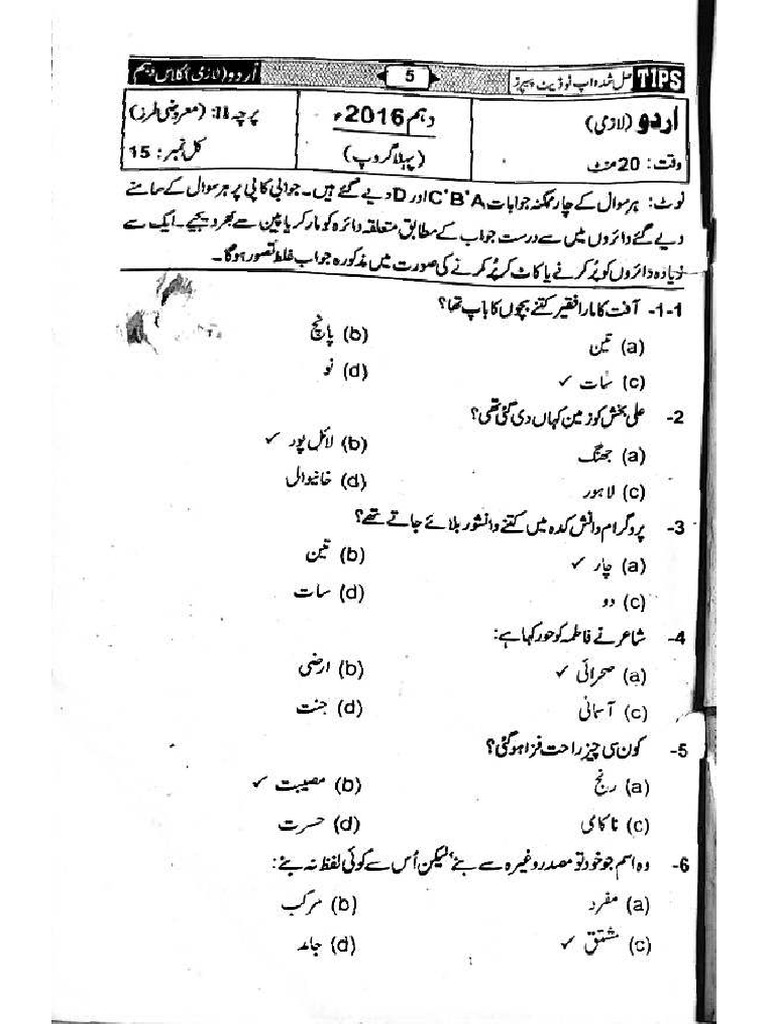 TIPS حل شدہ اپ ٹو ڈیٹ پیپرز 5 اردو (لازمی) کلاس دہم
اردو (لازمی) دہم 2016ء پرچہ II: (معروضی طرز)
وقت: 20 منٹ (پہلا گروپ) کل نمبر: 15
نوٹ: ہر سوال کے چار ممکنہ جوابات A'B'C اور D دیے گئے ہیں۔ جوابی کاپی پر ہر سوال کے سامنے
دیے گئے دائروں میں سے درست جواب کے مطابق متعلقہ دائرہ کو مارکر یا پین سے بھر دیجیے۔ ایک سے
زیادہ دائروں کو پُر کرنے یا کاٹ کر پُر کرنے کی صورت میں مذکورہ جواب غلط تصور ہوگا۔
1-1- آفت کا مارا فقیر کتنے بچوں کا باپ تھا؟
(a) تین (b) پانچ
(c) سات ✓ (d) نو
2- علی بخش کو زمین کہاں دی گئی تھی؟
(a) جھنگ (b) لائل پور ✓
(c) لاہور (d) خانیوال
3- پروگرام دانش کدہ میں کتنے دانشور بلائے جاتے تھے؟
(a) چار ✓ (b) تین
(c) دو (d) سات
4- شاعر نے فاطمہ کو حور کہا ہے:
(a) صحرائی ✓ (b) ارضی
(c) آسمانی (d) جنت
5- کون سی چیز راحت فزا ہو گئی؟
(a) رنج (b) مصیبت ✓
(c) ناکامی (d) حسرت
6- وہ اسم جو خود تو مصدر وغیرہ سے بنے' لیکن اُس سے کوئی لفظ نہ بنے:
(a) مفرد (b) مرکب
(c) مشتق ✓ (d) جامد